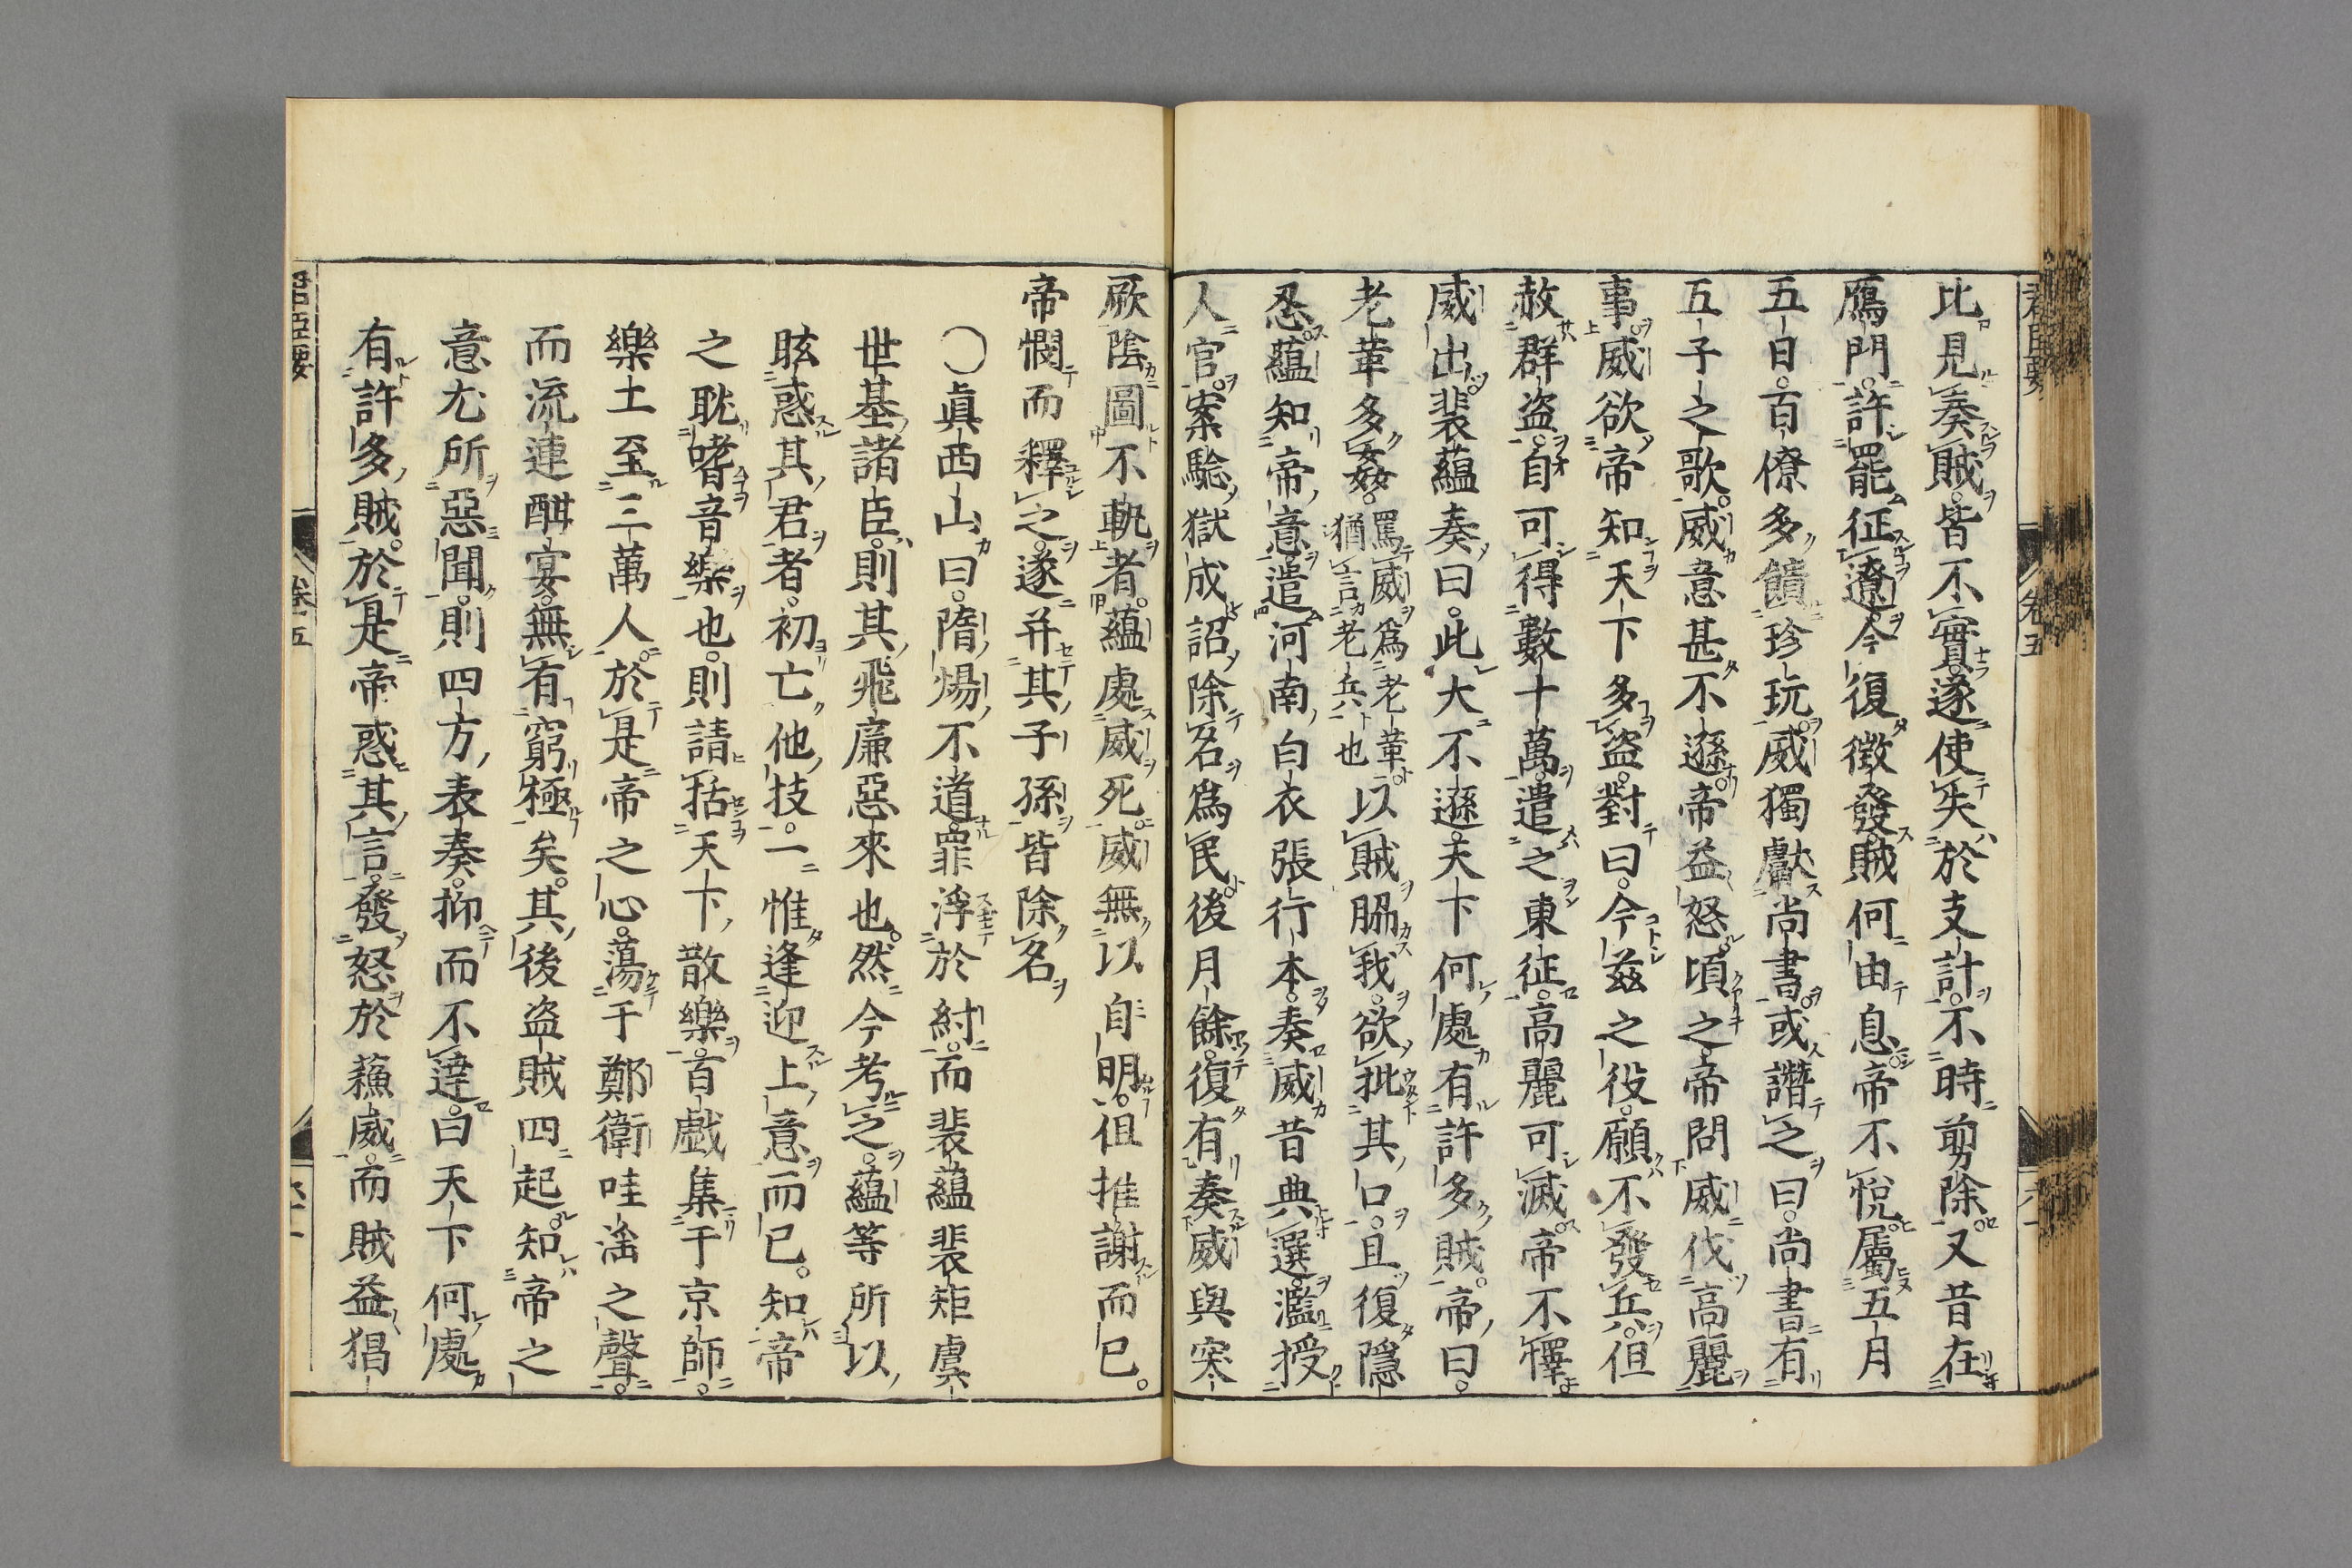 比見奏賊皆不實遂使失於支計不時剪除又昔在
鴈門許罷征遼今復徵發賊何由息帝不悅屬五月
五日百僚多饋珍玩威獨獻尚書或譖之曰尚書有
五子之歌威意甚不遜帝益怒頃之帝問威伐高麗
事威欲帝知天下多盜對曰今茲之役願不發兵但
赦群盜自可得數十萬遣之東征高麗可滅帝不懌
威出裴蘊奏曰此大不遜天下何處有許多賊帝曰
老革多姦罵威爲老革猶言老兵也以賊脇我欲批其口且復隱
忍蘊知帝意遣河南白衣張行本奏威昔典選濫授
人官案驗獄成詔除名爲民後月餘復有奏威與突
厥陰圖不軌者蘊處威死威無以自明但摧謝而已
帝憫而釋之遂并其子孫皆除名
〇眞西山曰隋煬不道罪浮於紂而裴蘊裴矩虞
世基諸臣則其飛廉惡來也然今考之蘊等所以
眩惑其君者初亡他技一惟逢迎上意而已知帝
之耽嗜音樂也則請括天下散樂百戲集于京師
樂工至三萬人於是帝之心蕩于鄭衛哇淫之聲
而流連酣宴無有窮極矣其後盜賊四起知帝之
意尤所惡聞則四方表奏抑而不達曰天下何處
有許多賊於是帝惑其言發怒於蘓威而賊益猖
君臣要
卷五